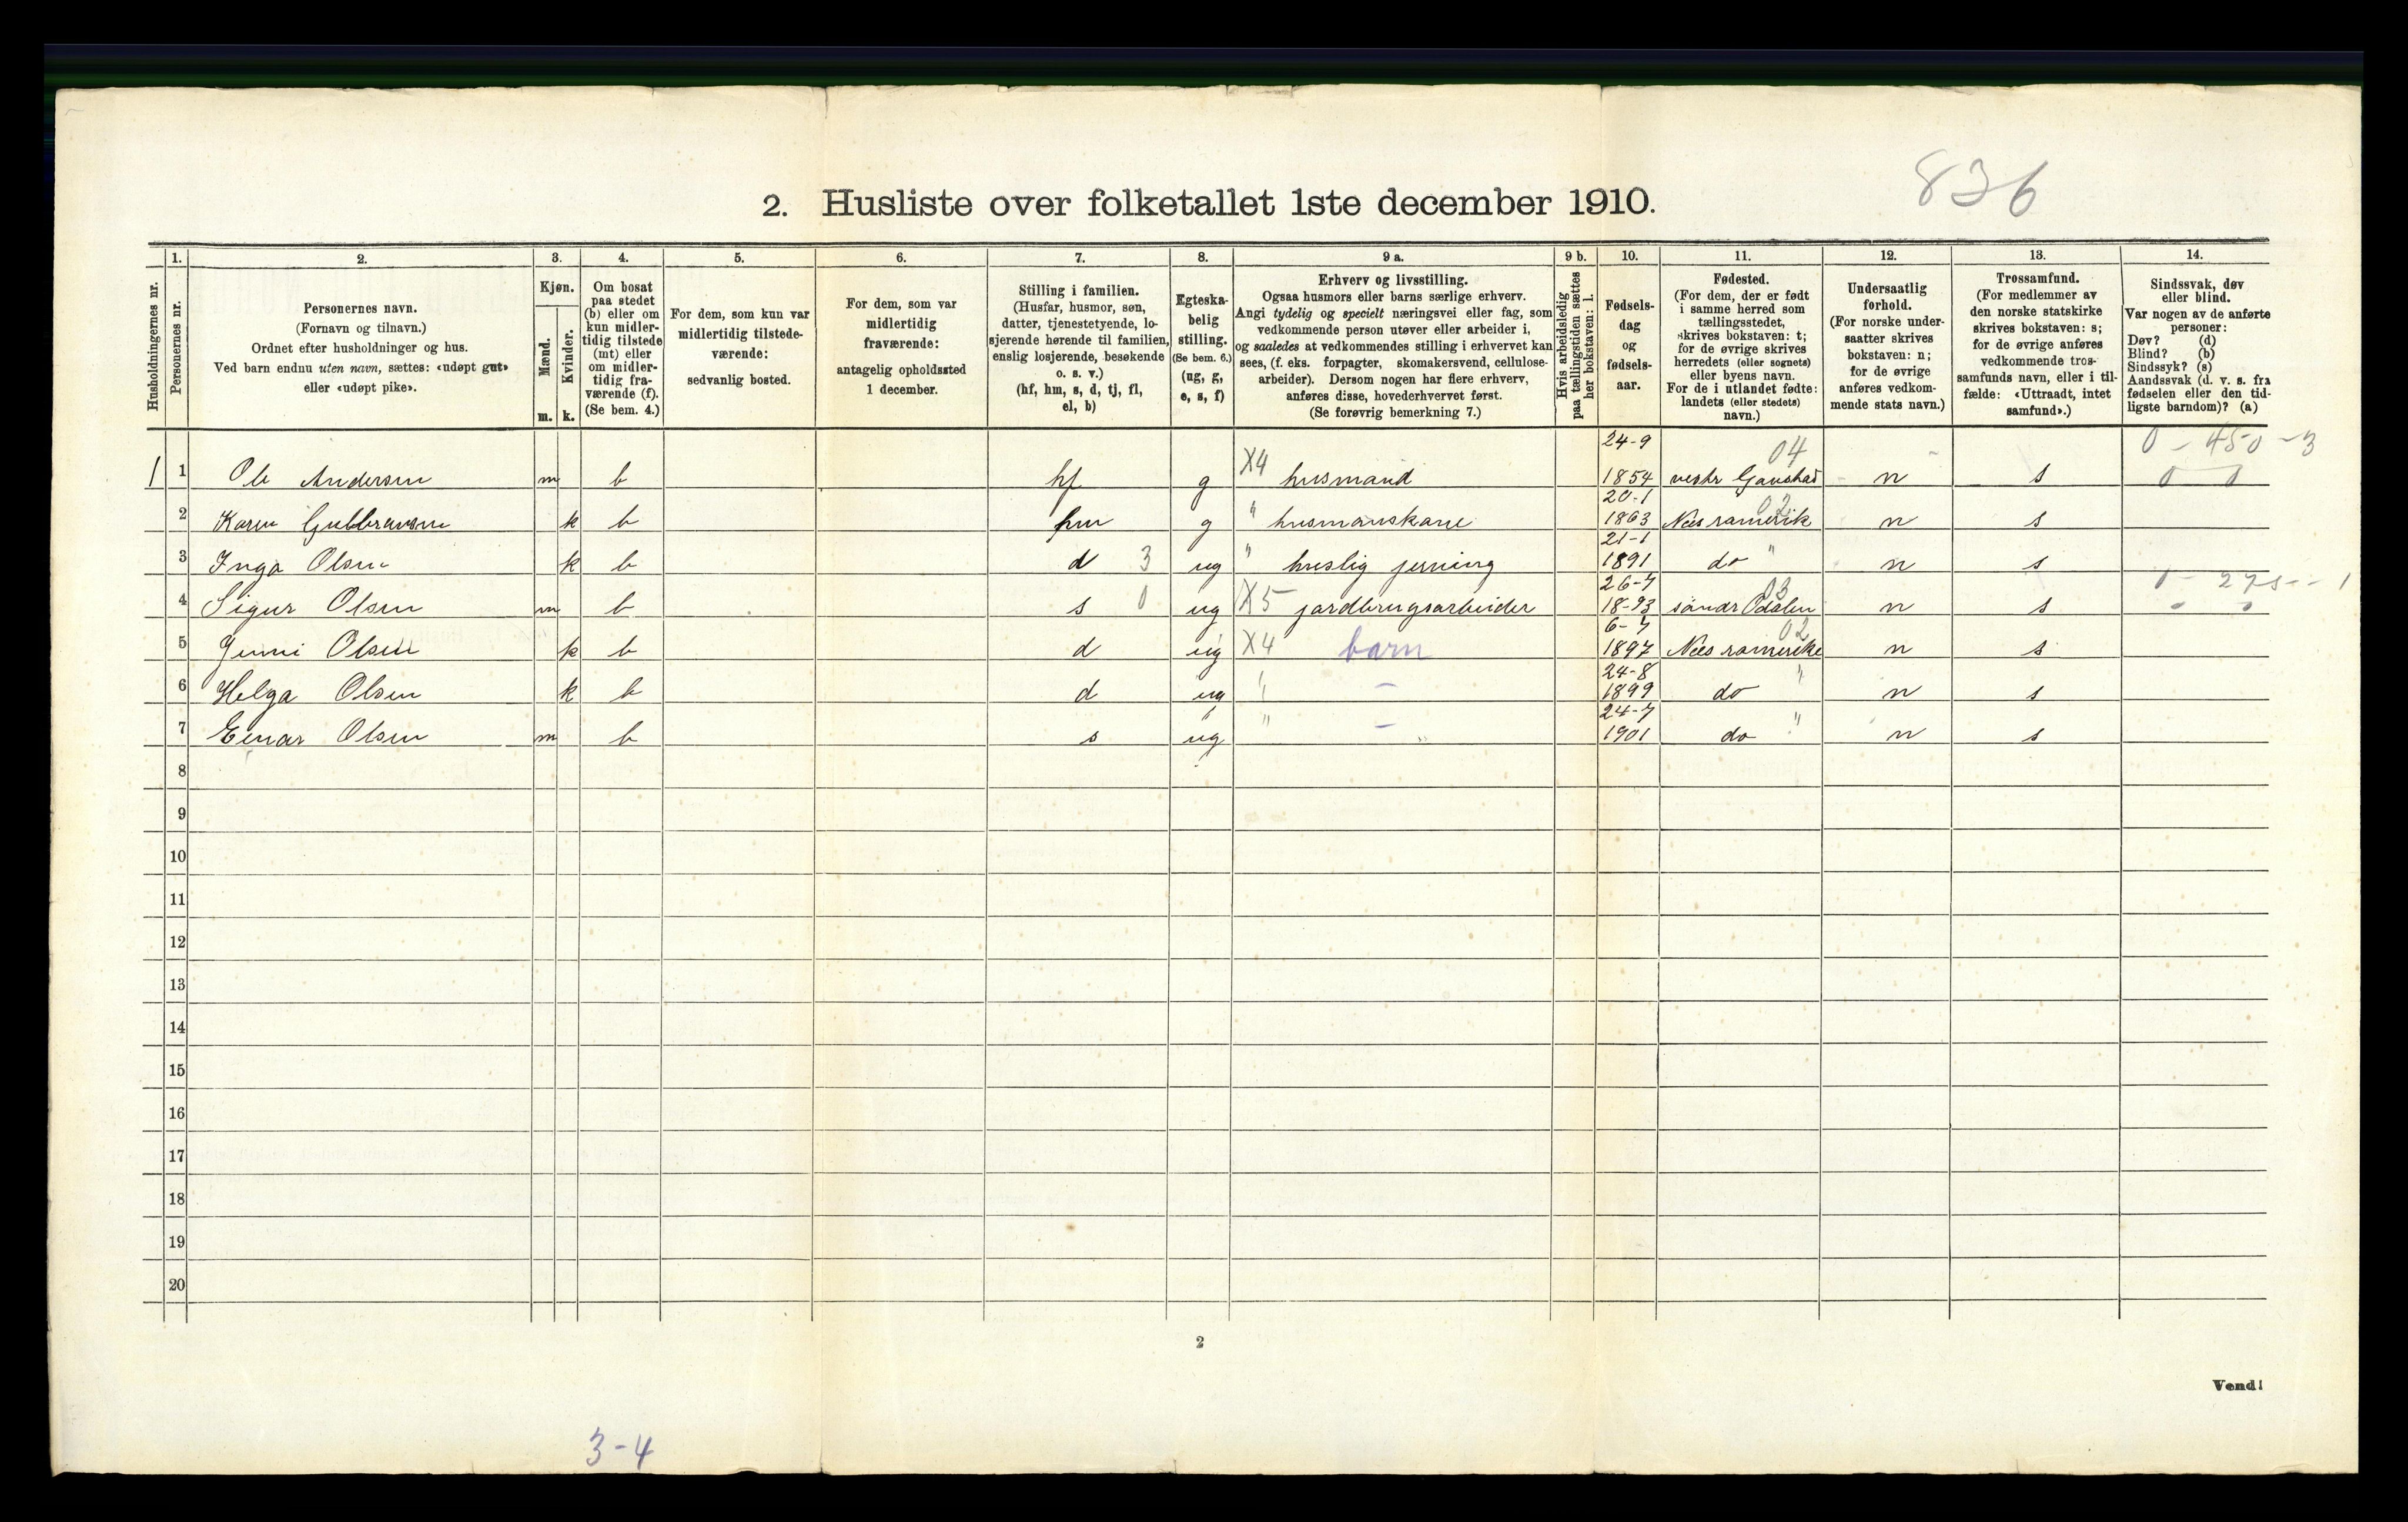 836
2. Husliste over folketallet 1ste december 1910.
Husholdningernes nr.
1.
Personernes nr.
2.
Personernes navn.
(Fornavn og tilnavn.)
Ordnet efter husholdninger og hus.
Ved barn endnu uten navn, sættes: «udøpt gut»
eller «udøpt pike».
3.
Kjøn.
Mænd.
m.
Kvinder.
k.
4.
Om bosat
paa stedet
(b) eller om
kun midler-
tidig tilstede
(mt) eller
om midler-
tidig fra-
værende (f).
(Se bem. 4.)
5.
For dem, som kun var
midlertidig tilstede-
værende:
sedvanlig bosted.
6.
For dem, som var
midlertidig
fraværende:
antagelig opholdssted
1 december.
7.
Stilling i familien.
(Husfar, husmor, søn,
datter, tjenestetyende, lo-
sjerende hørende til familien,
enslig losjerende, besøkende
o. s. v.)
(hf, hm, s, d, tj, fl,
el, b)
8.
Egteska-
belig
stilling.
(Se bem. 6.)
(ug, g,
e, s, f)
9 a.
Erhverv og livsstilling.
Ogsaa husmors eller barns særlige erhverv.
Angi tydelig og specielt næringsvei eller fag, som
vedkommende person utøver eller arbeider i,
og saaledes at vedkommendes stilling i erhvervet kan
sees, (f. eks. forpagter, skomakersvend, cellulose-
arbeider). Dersom nogen har flere erhverv,
anføres disse, hovederhvervet først.
(Se forøvrig bemerkning 7.)
9 b.
Hvis arbeidsledig
paa tællingstiden sættes
her bokstaven: l.
10.
Fødsels-
dag
og
fødsels-
aar.
11.
Fødested.
(For dem, der er født
i samme herred som
tællingsstedet,
skrives bokstaven: t;
for de øvrige skrives
herredets (eller sognets)
eller byens navn.
For de i utlandet fødte:
landets (eller stedets)
navn.)
12.
Undersaatlig
forhold.
(For norske under-
saatter skrives
bokstaven: n;
for de øvrige
anføres vedkom-
mende stats navn.)
13.
Trossamfund.
(For medlemmer av
den norske statskirke
skrives bokstaven: s;
for de øvrige anføres
vedkommende tros-
samfunds navn, eller i til-
fælde: «Uttraadt, intet
samfund».)
14.
Sindssvak, døv
eller blind.
Var nogen av de anførte
personer:
Døv? (d)
Blind? (b)
Sindssyk? (s)
Aandssvak (d. v. s. fra
fødselen eller den tid-
ligste barndom)? (a)
24-9 04 0 - 450 - 3
1 1 Ole Andersen m b hf g X4 husmand 1854 vestr Gaustad n s 0 0
20-1 02
2 Karen Gulbransen k b hm g " husmanskane 1863 Nes ramerik n s
21-1
3 Inga Olsen k b d 3 ug " huslig jerning 1891 do " n s
26-7 03 0 - 275 - - 1
4 Sigur Olsen m b s 0 ug X5 jordbrugsarbeider 18-93 söndr Odalen n s
6-7 02
5 Jenni Olsen k b d ug X4 barn 1897 Nes ramerike n s
24-8
6 Helga Olsen k b d ug " - 1899 do " n s
24-7
7 Einar Olsen m b s ug " - " 1901 do " n s
8
9
10
11
12
13
14
15
16
17
18
19
20
2
Vend!
3-4